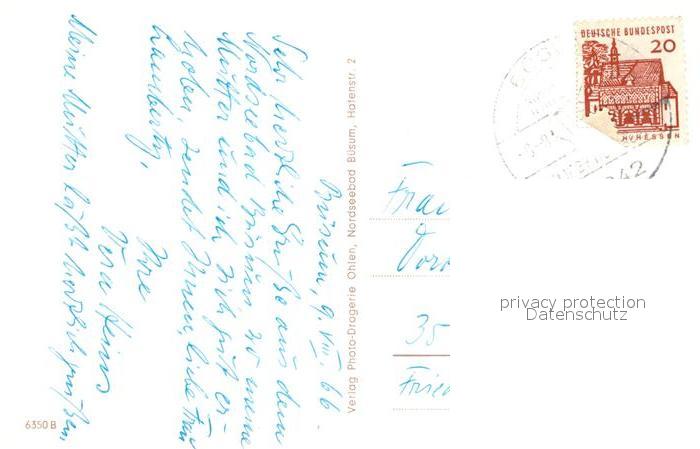 Büsum, 9. VIII. 66
Sehr herzliche Grüße aus dem
Nordseebad Büsum, wo meine
Mutter und ich sich gut er-
holen, sendet Ihnen, liebe Frau
Ihre
Vera Heins
Meine Mutter läßt herzlich grüßen,
Verlag Photo-Drogerie Ohlen, Nordseebad Büsum, Hafenstr. 2
6350 B
DEUTSCHE BUNDESPOST
20
HESSEN
242
Frau
35
Fried
privacy protection
Datenschutz